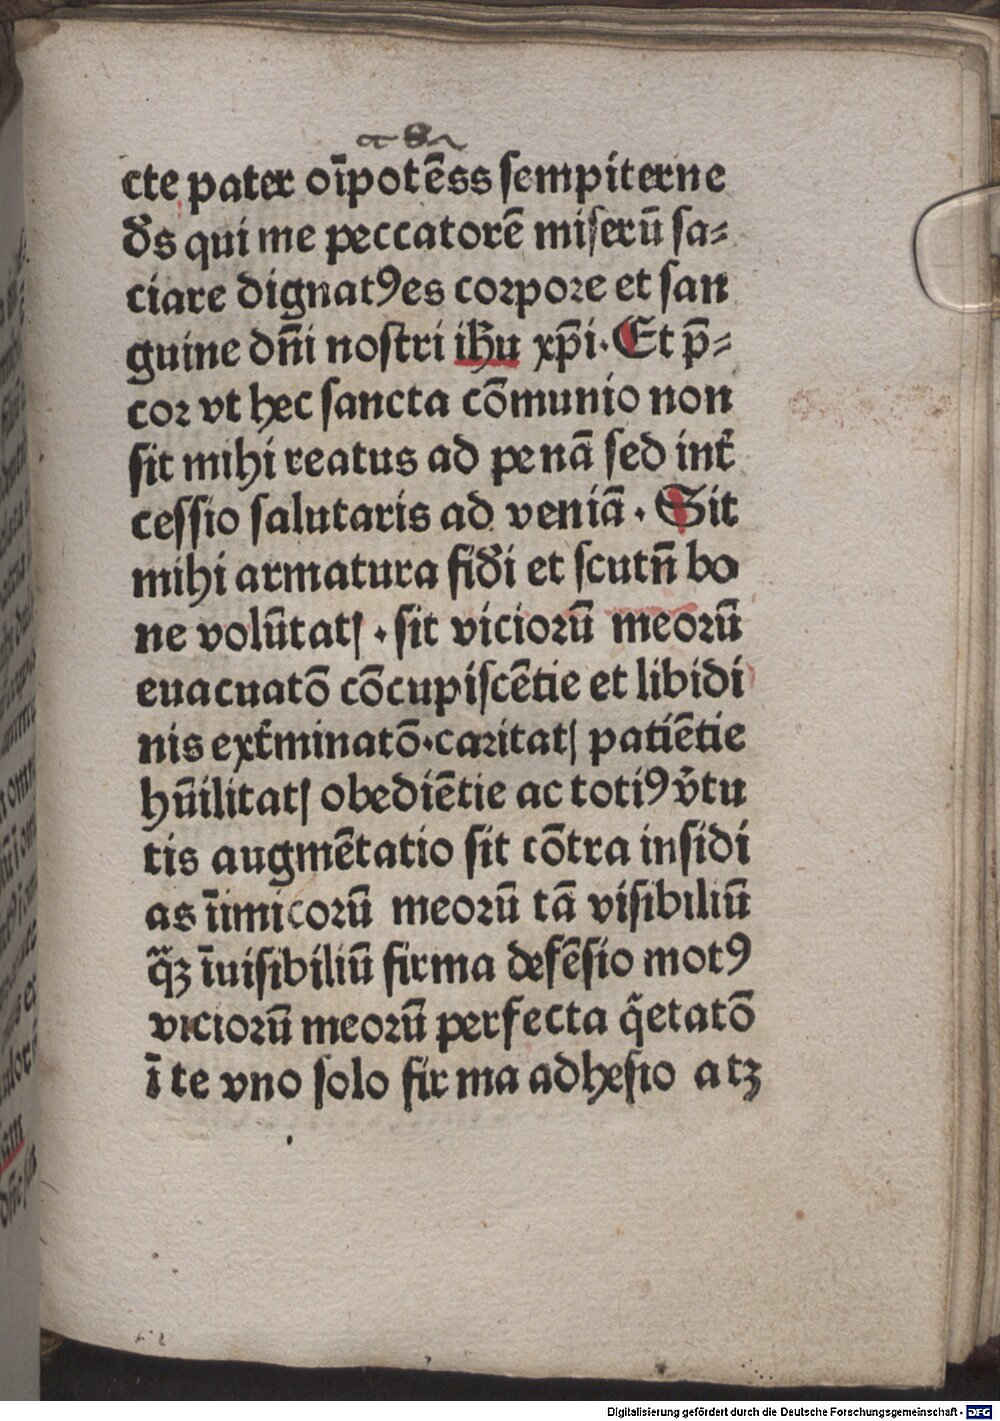 cte pater oīpotēss sempiterne
ds̄ qui me peccatorē miserū sa⸗
ciare dignatꝰes corpore et san
guine dn̄i nostri ih̄u xp̄i. Et p̄⸗
cor vt hec sancta cōmunio non
sit mihi reatus ad penā sed int̄
cessio salutaris ad veniā. Sit
mihi armatura fid̄i et scutn̄ bo
ne volūtatꝭ. sit viciorū meorū
euacuatō cōcupiscētie et libidi
nis ext̄minatō.caritatꝭ patiētie
hūilitatꝭ obediētie ac totiꝰ v̄tu
tis augmētatio sit cōtra insidi
as īimicorū meorū tā visibiliū
q̄ꝫ īuisibiliū firma defēsio motꝰ
viciorū meorū perfecta q̄etatō
ī te vno solo firma adhesio atꝫ
Digitalisierung gefördert durch die Deutsche Forschungsgemeinschaft - DFG